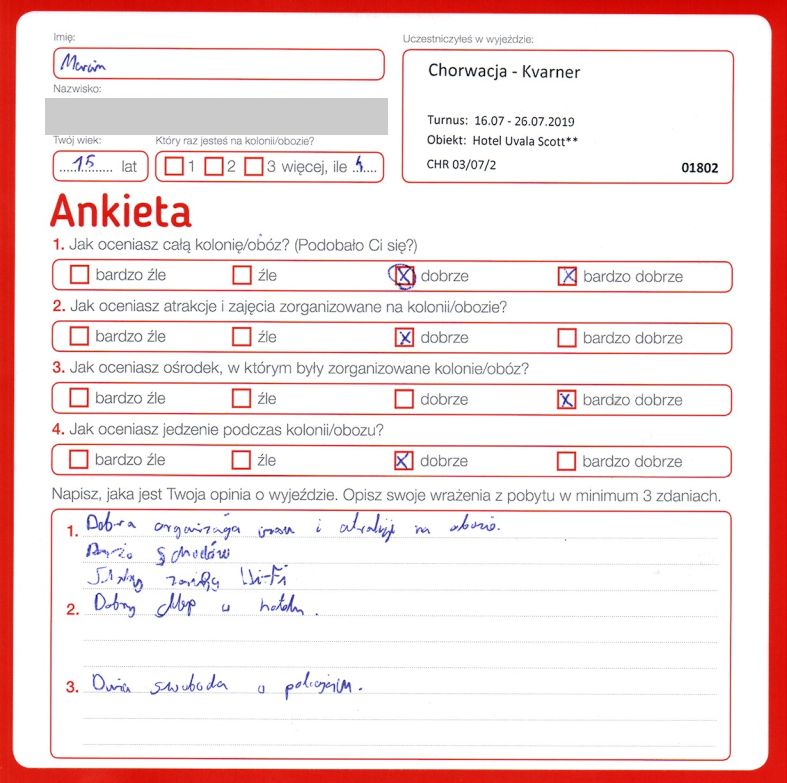 Imię:
Uczestniczyłeś w wyjeździe:
Marcin
Chorwacja - Kvarner
Nazwisko:
Turnus: 16.07 - 26.07.2019
Obiekt: Hotel Uvala Scott**
CHR 03/07/2
01802
Twój wiek:
Który raz jesteś na kolonii/obozie?
15 lat
1 2 3 więcej, ile 4
Ankieta
1. Jak oceniasz całą kolonię/obóz? (Podobało Ci się?)
bardzo źle źle dobrze bardzo dobrze
2. Jak oceniasz atrakcje i zajęcia zorganizowane na kolonii/obozie?
bardzo źle źle dobrze bardzo dobrze
3. Jak oceniasz ośrodek, w którym były zorganizowane kolonie/obóz?
bardzo źle źle dobrze bardzo dobrze
4. Jak oceniasz jedzenie podczas kolonii/obozu?
bardzo źle źle dobrze bardzo dobrze
Napisz, jaka jest Twoja opinia o wyjeździe. Opisz swoje wrażenia z pobytu w minimum 3 zdaniach.
1. Dobra organizacja czasu i atrakcji na obozie.
Dużo schodów
Słaby zasięg Wi-Fi
2. Dobry sklep w hotelu.
3. Duża swoboda w